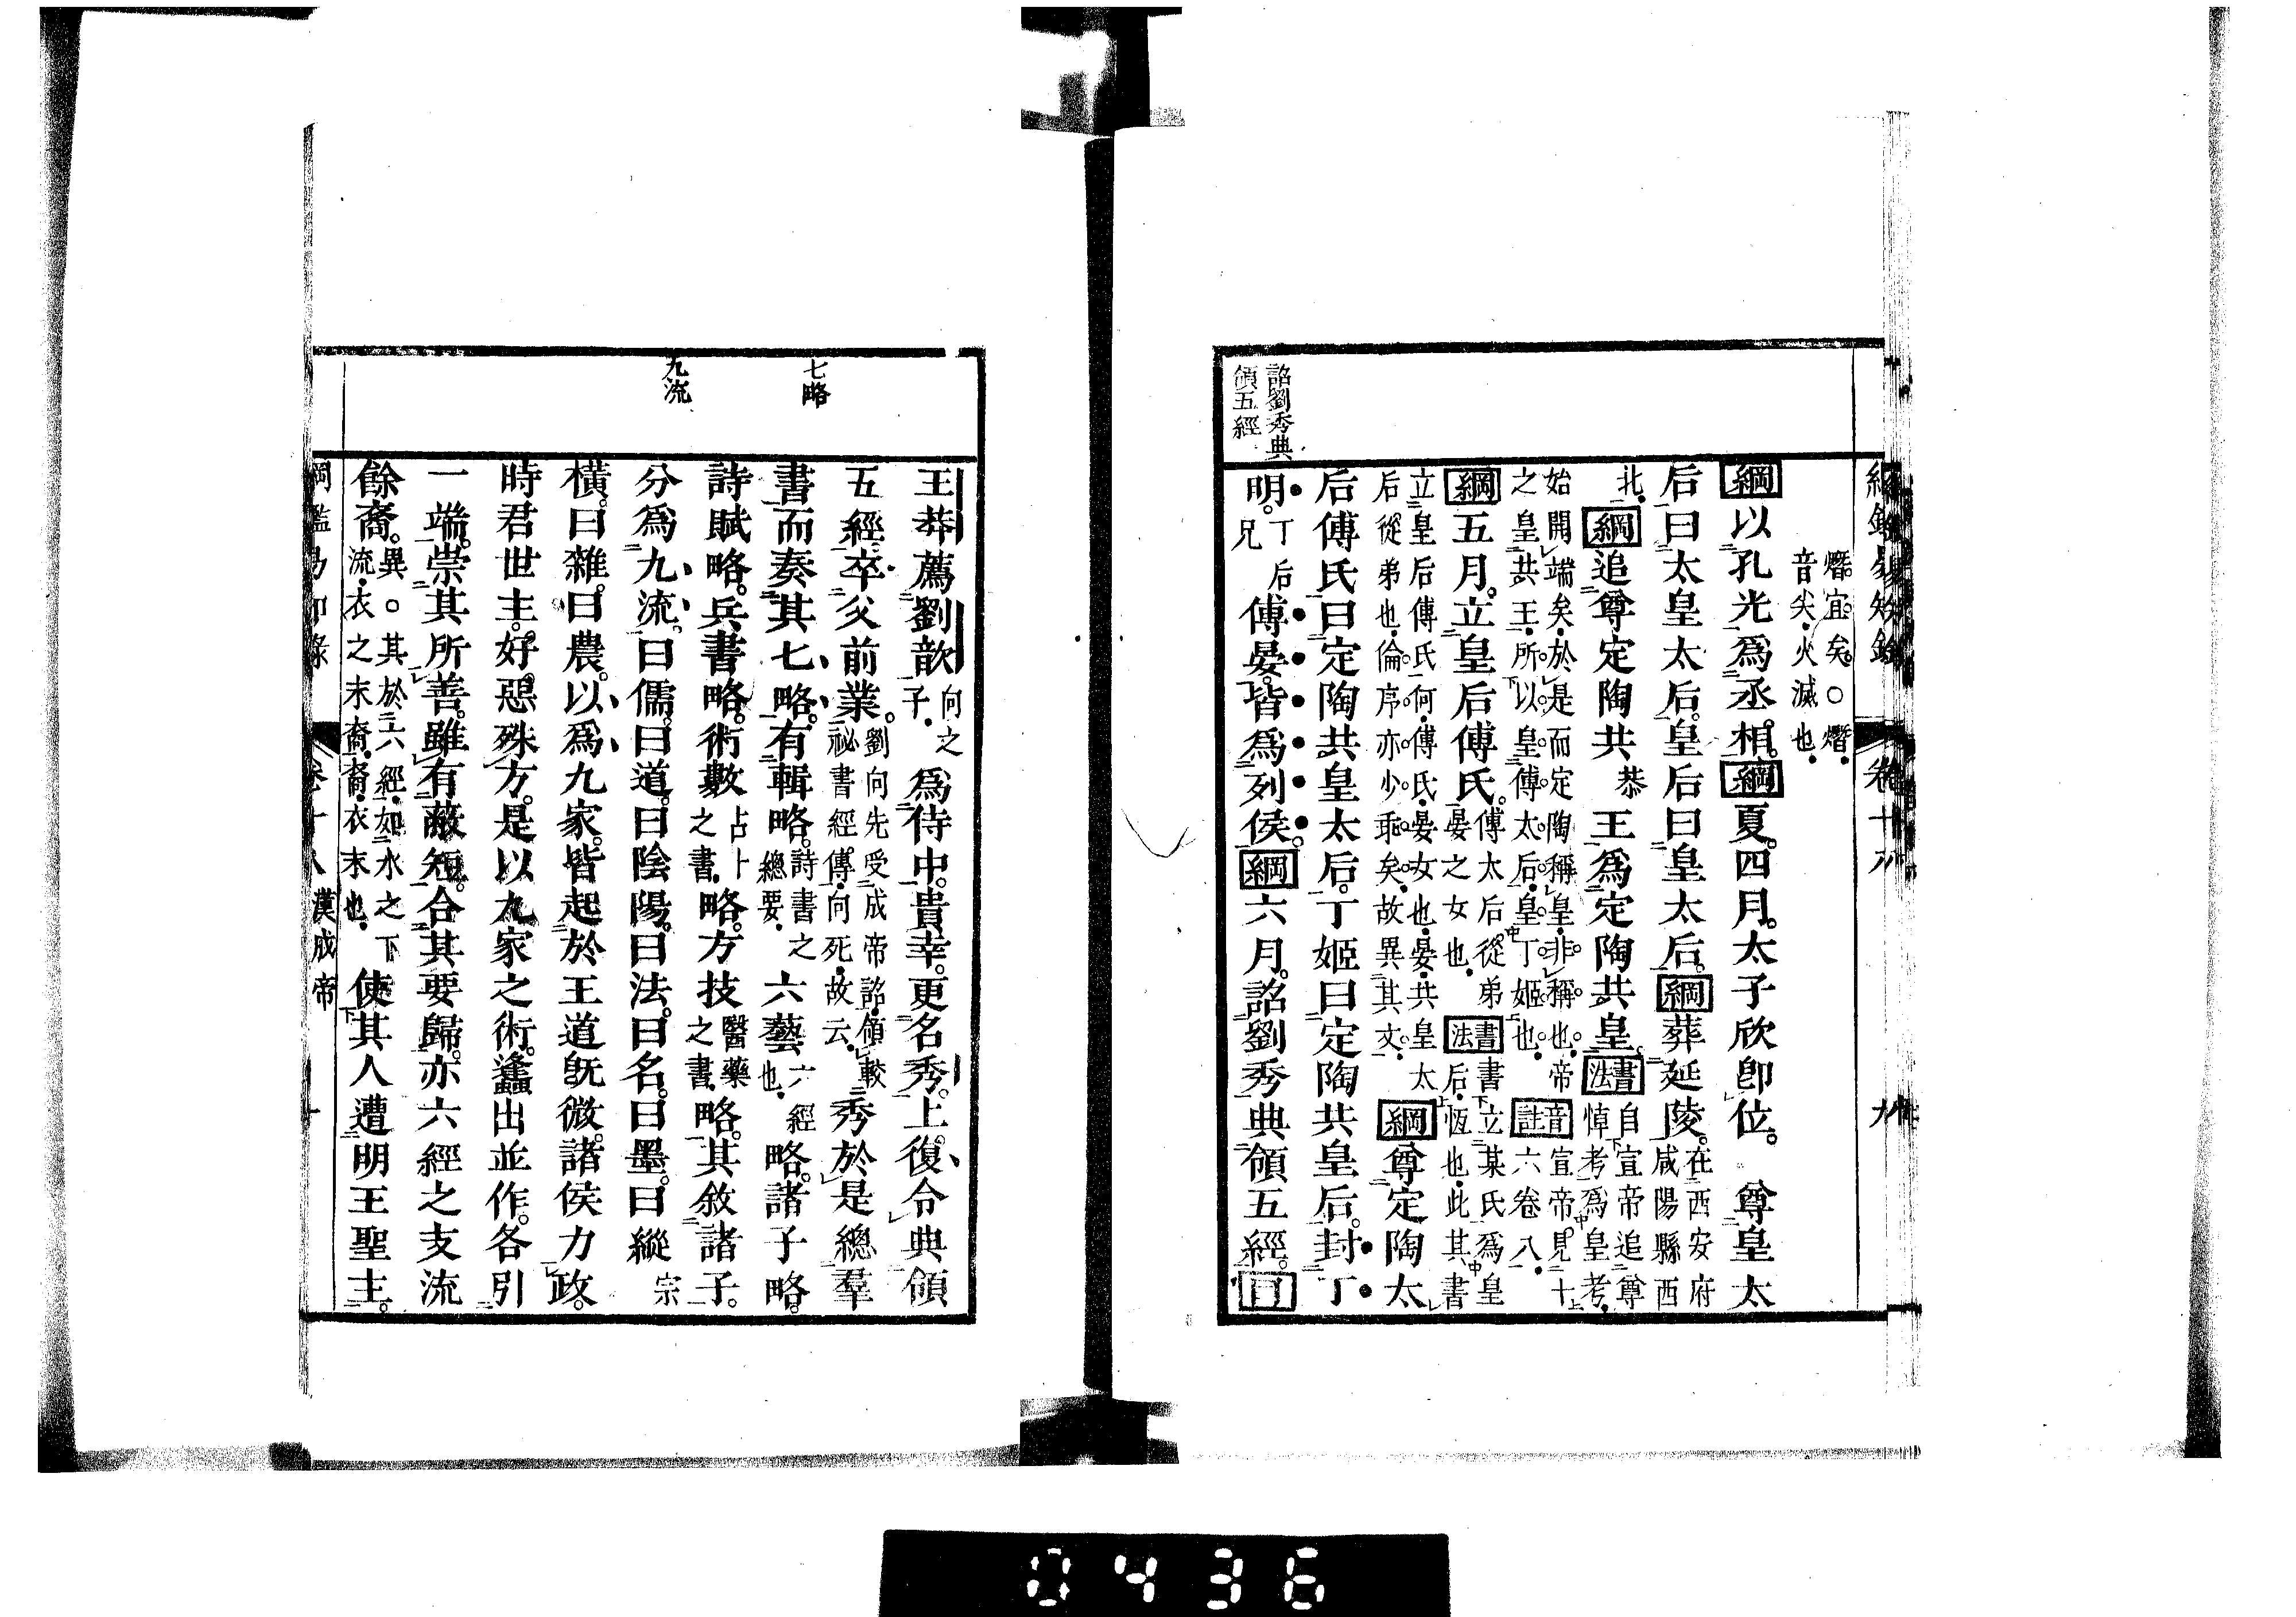 熸宜矣○熸
音尖火滅也
綱以孔光爲丞相綱夏四月太子欣卽位尊皇太
后曰太皇太后皇后曰皇太后綱葬延陵在西安府咸陽縣西
北綱追尊定陶共恭王爲定陶共皇書法自宣帝追尊悼考爲皇考
始開端矣於是而定陶稱皇非稱也帝
之皇共王所以皇傅太后皇丁姬也音註宣帝見十六卷八
綱五月立皇后傅氏傅太后從弟晏之女也書法書立某氏爲皇后恆也此其書
立皇后傅氏何傅氏晏女也晏共皇太
后從弟也倫序亦少乖矣故異其文綱尊定陶太
后傅氏曰定陶共皇太后丁姬曰定陶共皇后封丁
明丁后兄傅晏皆爲列侯綱六月詔劉秀典領五經目
詔劉秀典
領五經
王莽薦劉歆向之子爲侍中貴幸更名秀上復令典領
五經卒父前業劉向先受成帝詔領較祕書經傳向死故云秀於是總羣
書而奏其七略有輯略詩書之總要六藝六經也略諸子略
詩賦略兵書略術數占卜之書略方技醫藥之書略其敘諸子
分爲九流曰儒曰道曰陰陽曰法曰名曰墨曰縱宗
橫曰雜曰農以爲九家皆起於王道旣微諸侯力政
時君世主好惡殊方是以九家之術蠭出並作各引
一端崇其所善雖有蔽短合其要歸亦六經之支流
餘裔異○其於六經如水之下流衣之末裔裔衣末也使其人遭明王聖主
七略
九流
卷十八 漢成帝
0436